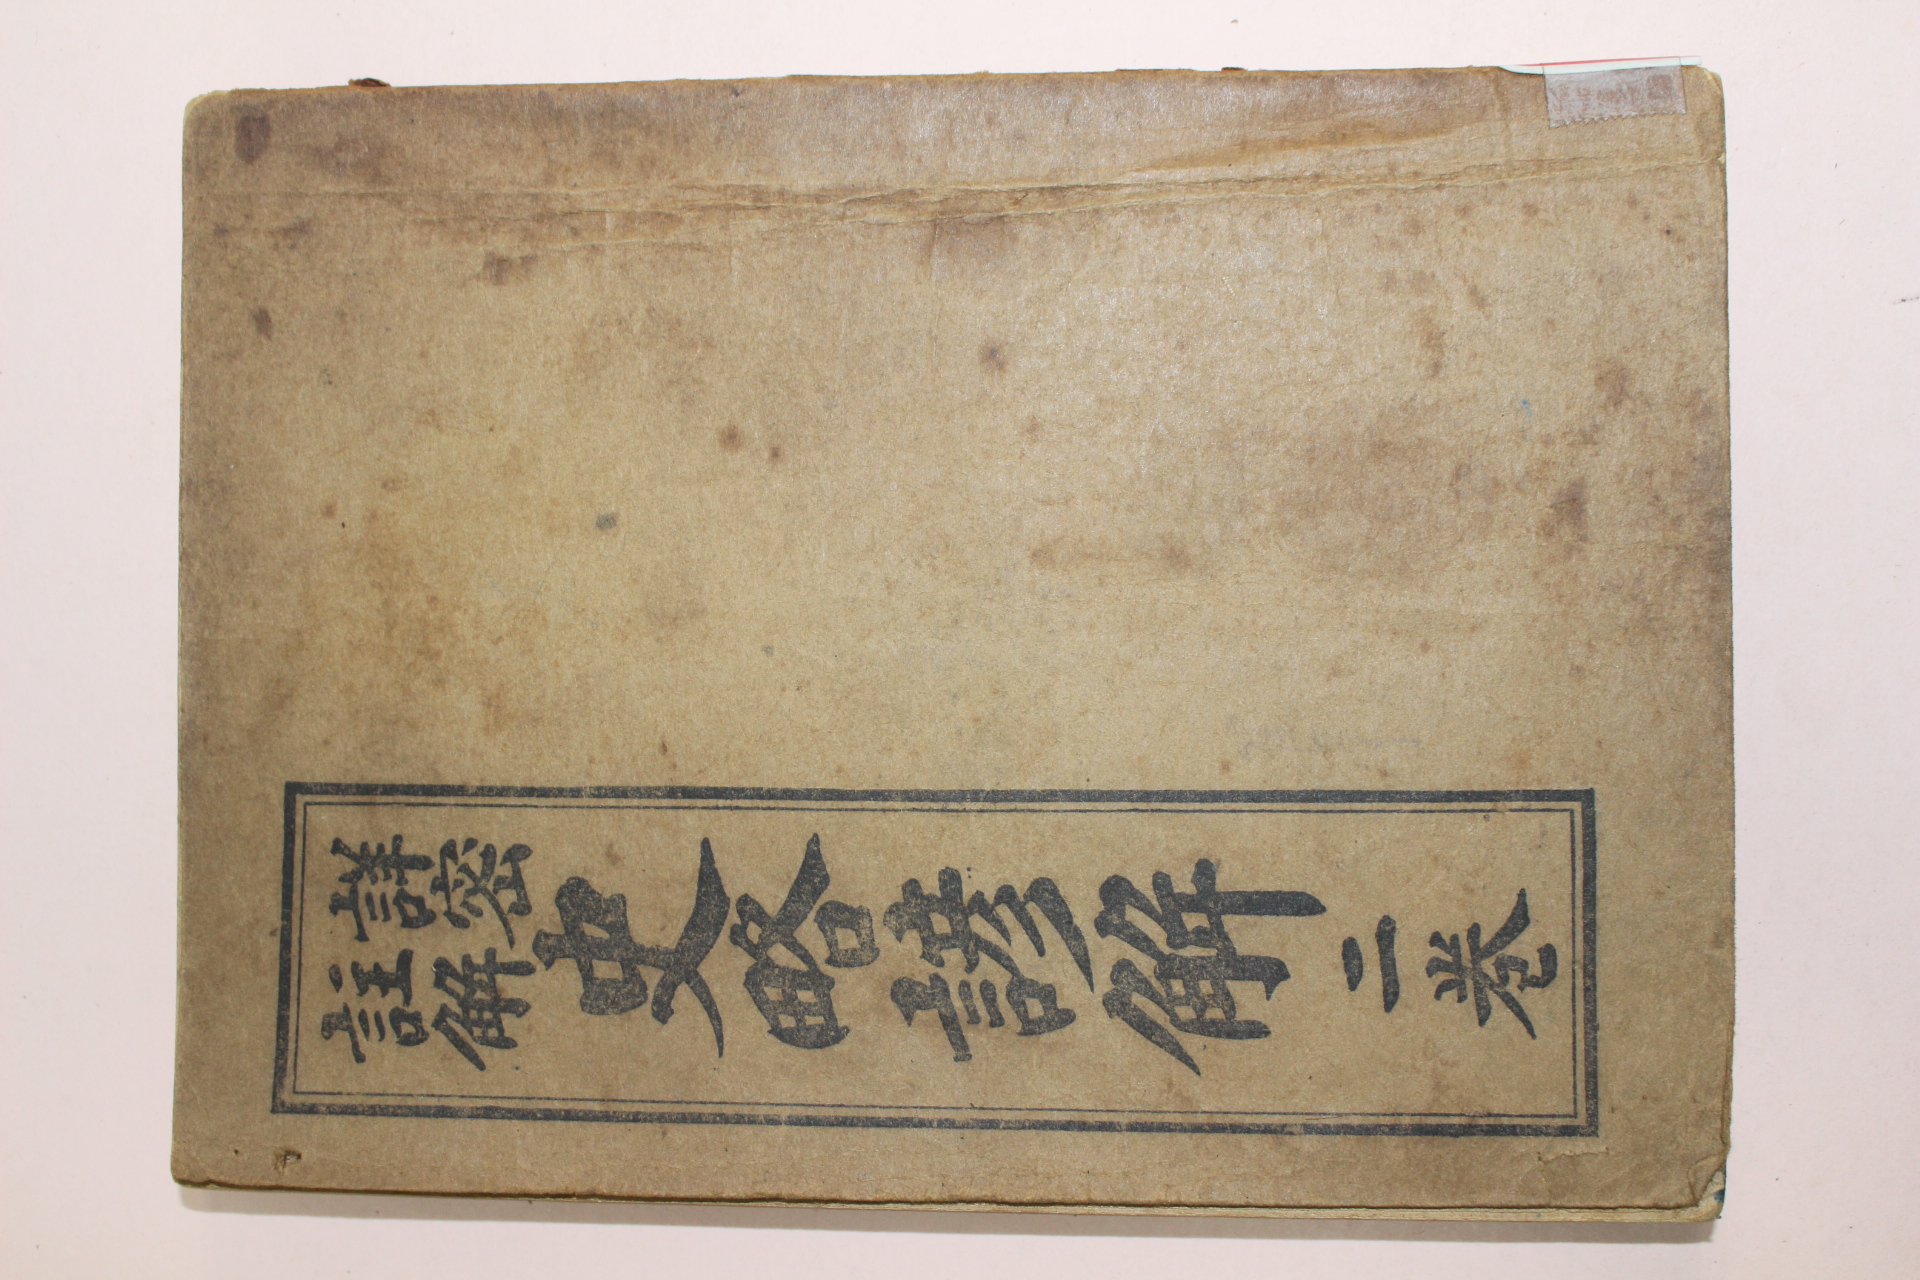 詳密
註解
史略諺解 二卷